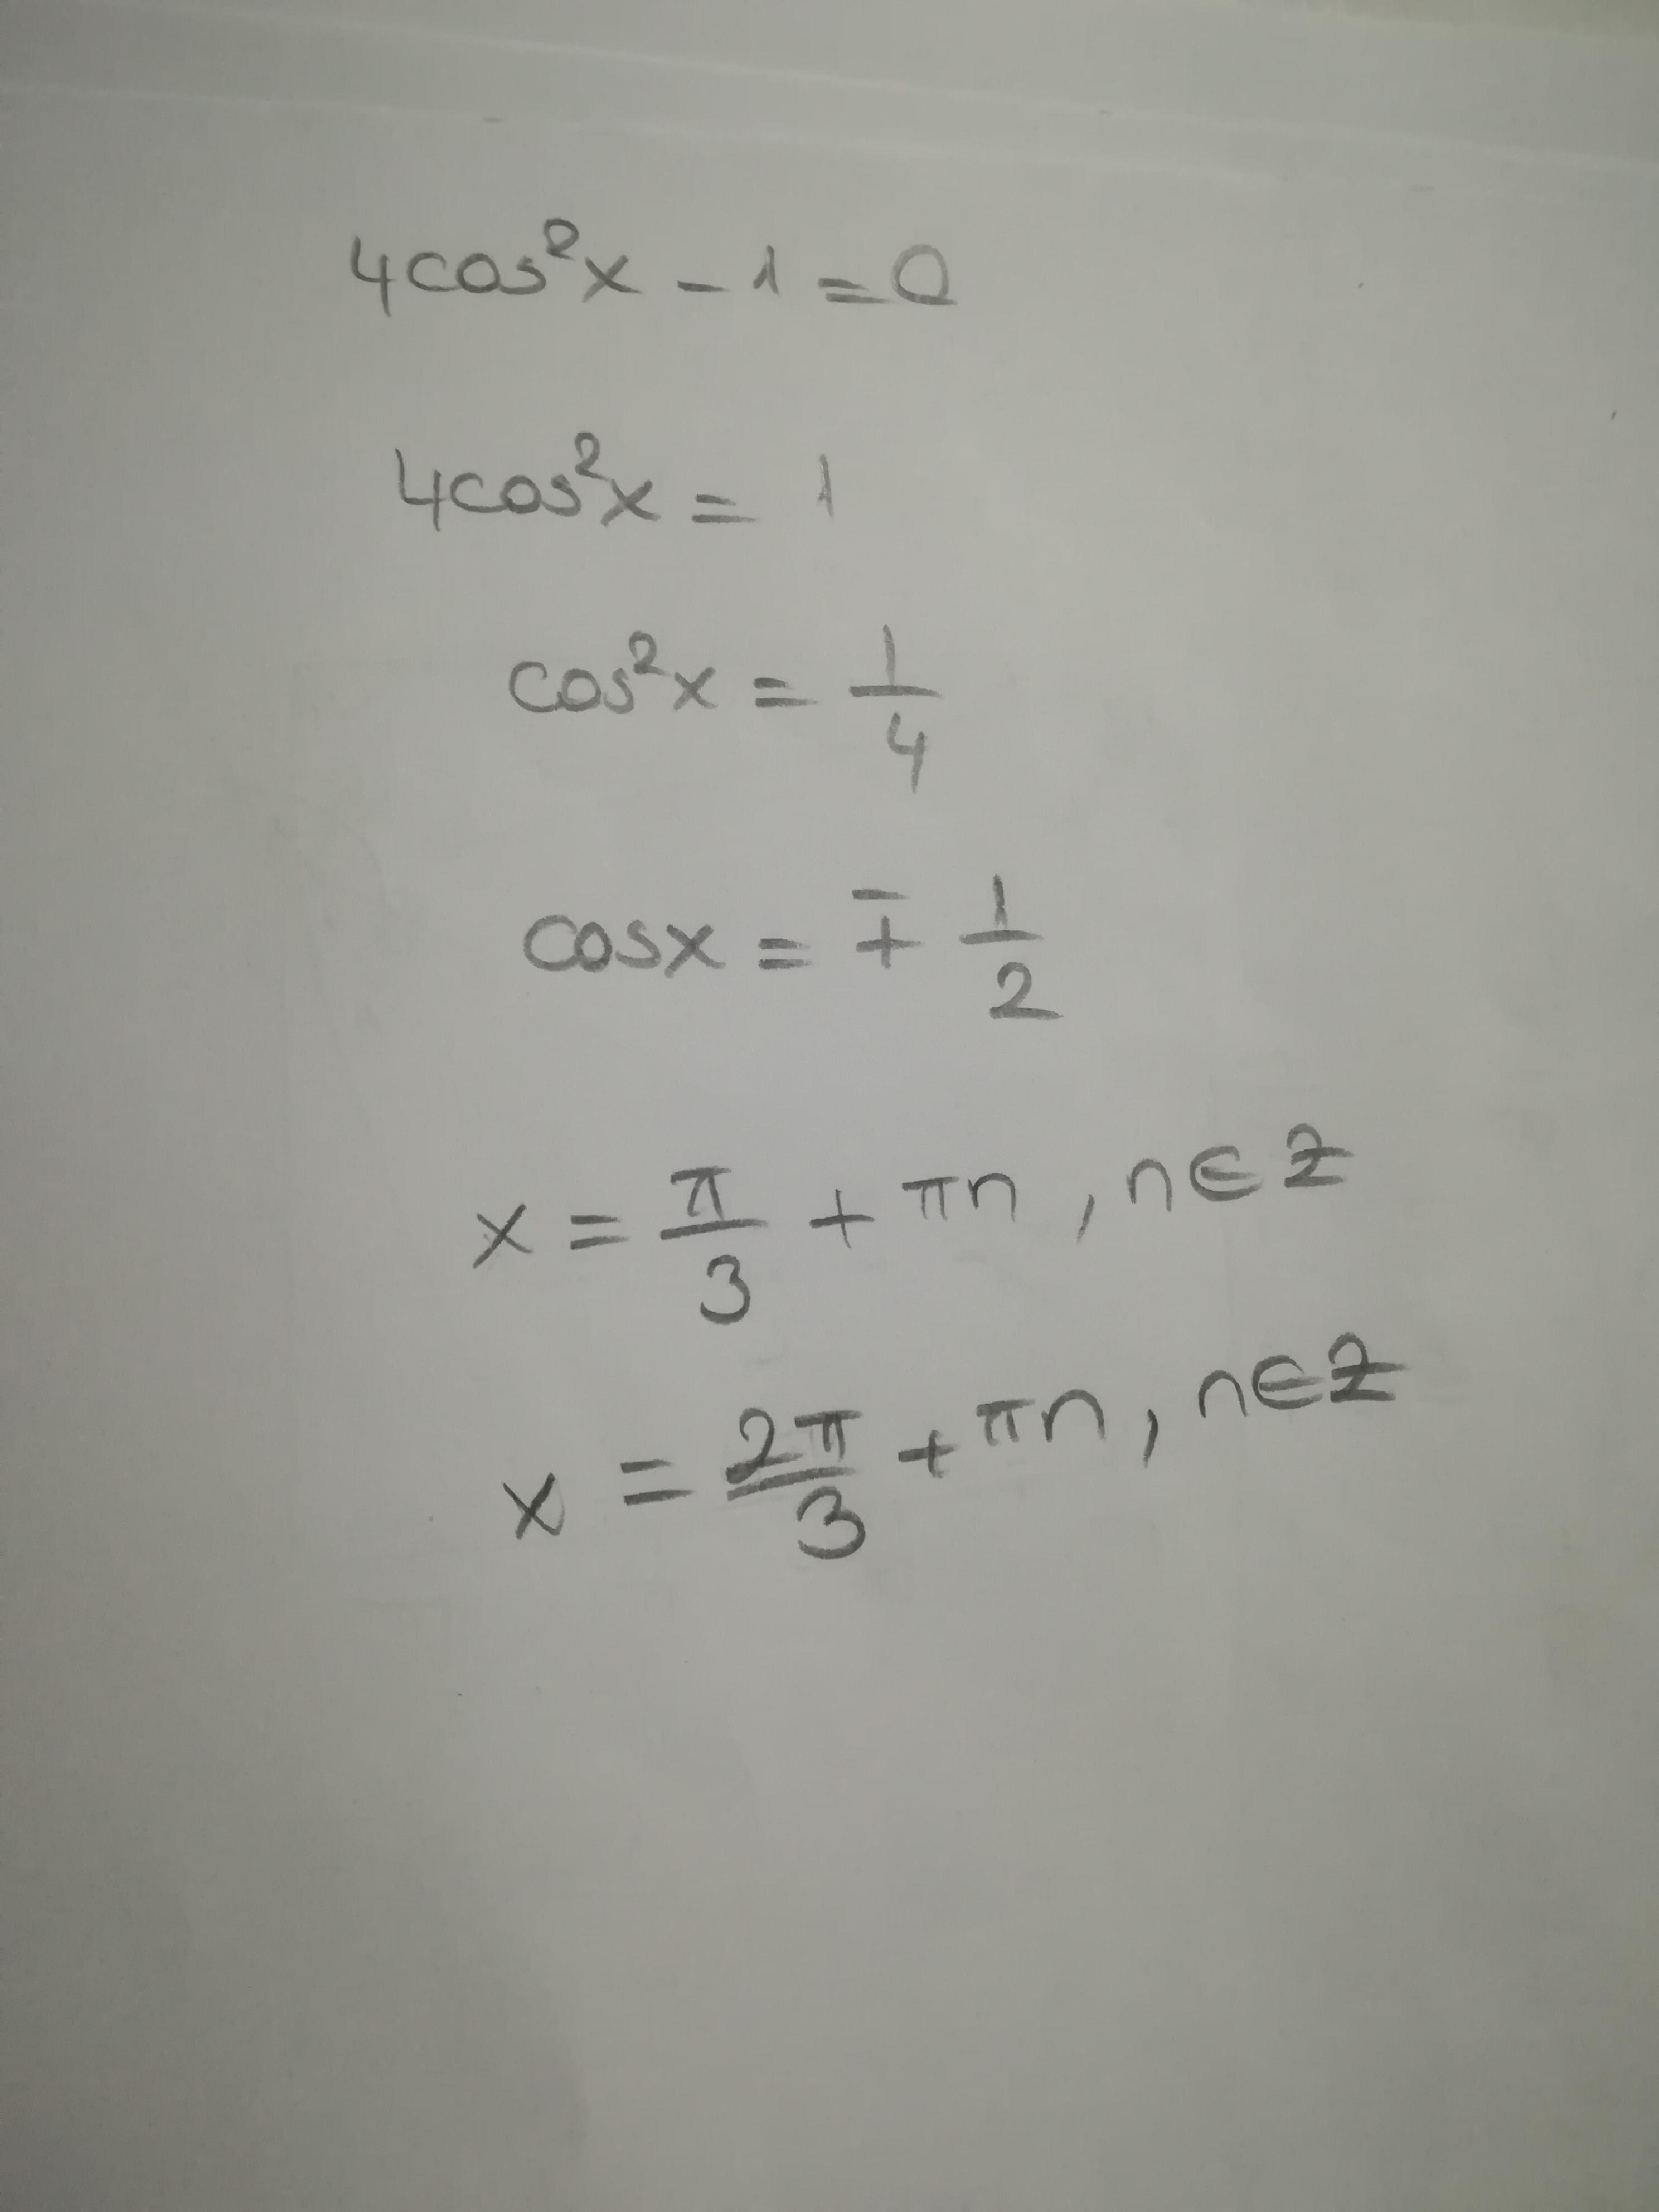 4cos²x - 1 = 0
4cos²x = 1
cos²x = 1/4
cosx = ∓ 1/2
x = π/3 + πn, n∈Z
x = 2π/3 + πn, n∈Z